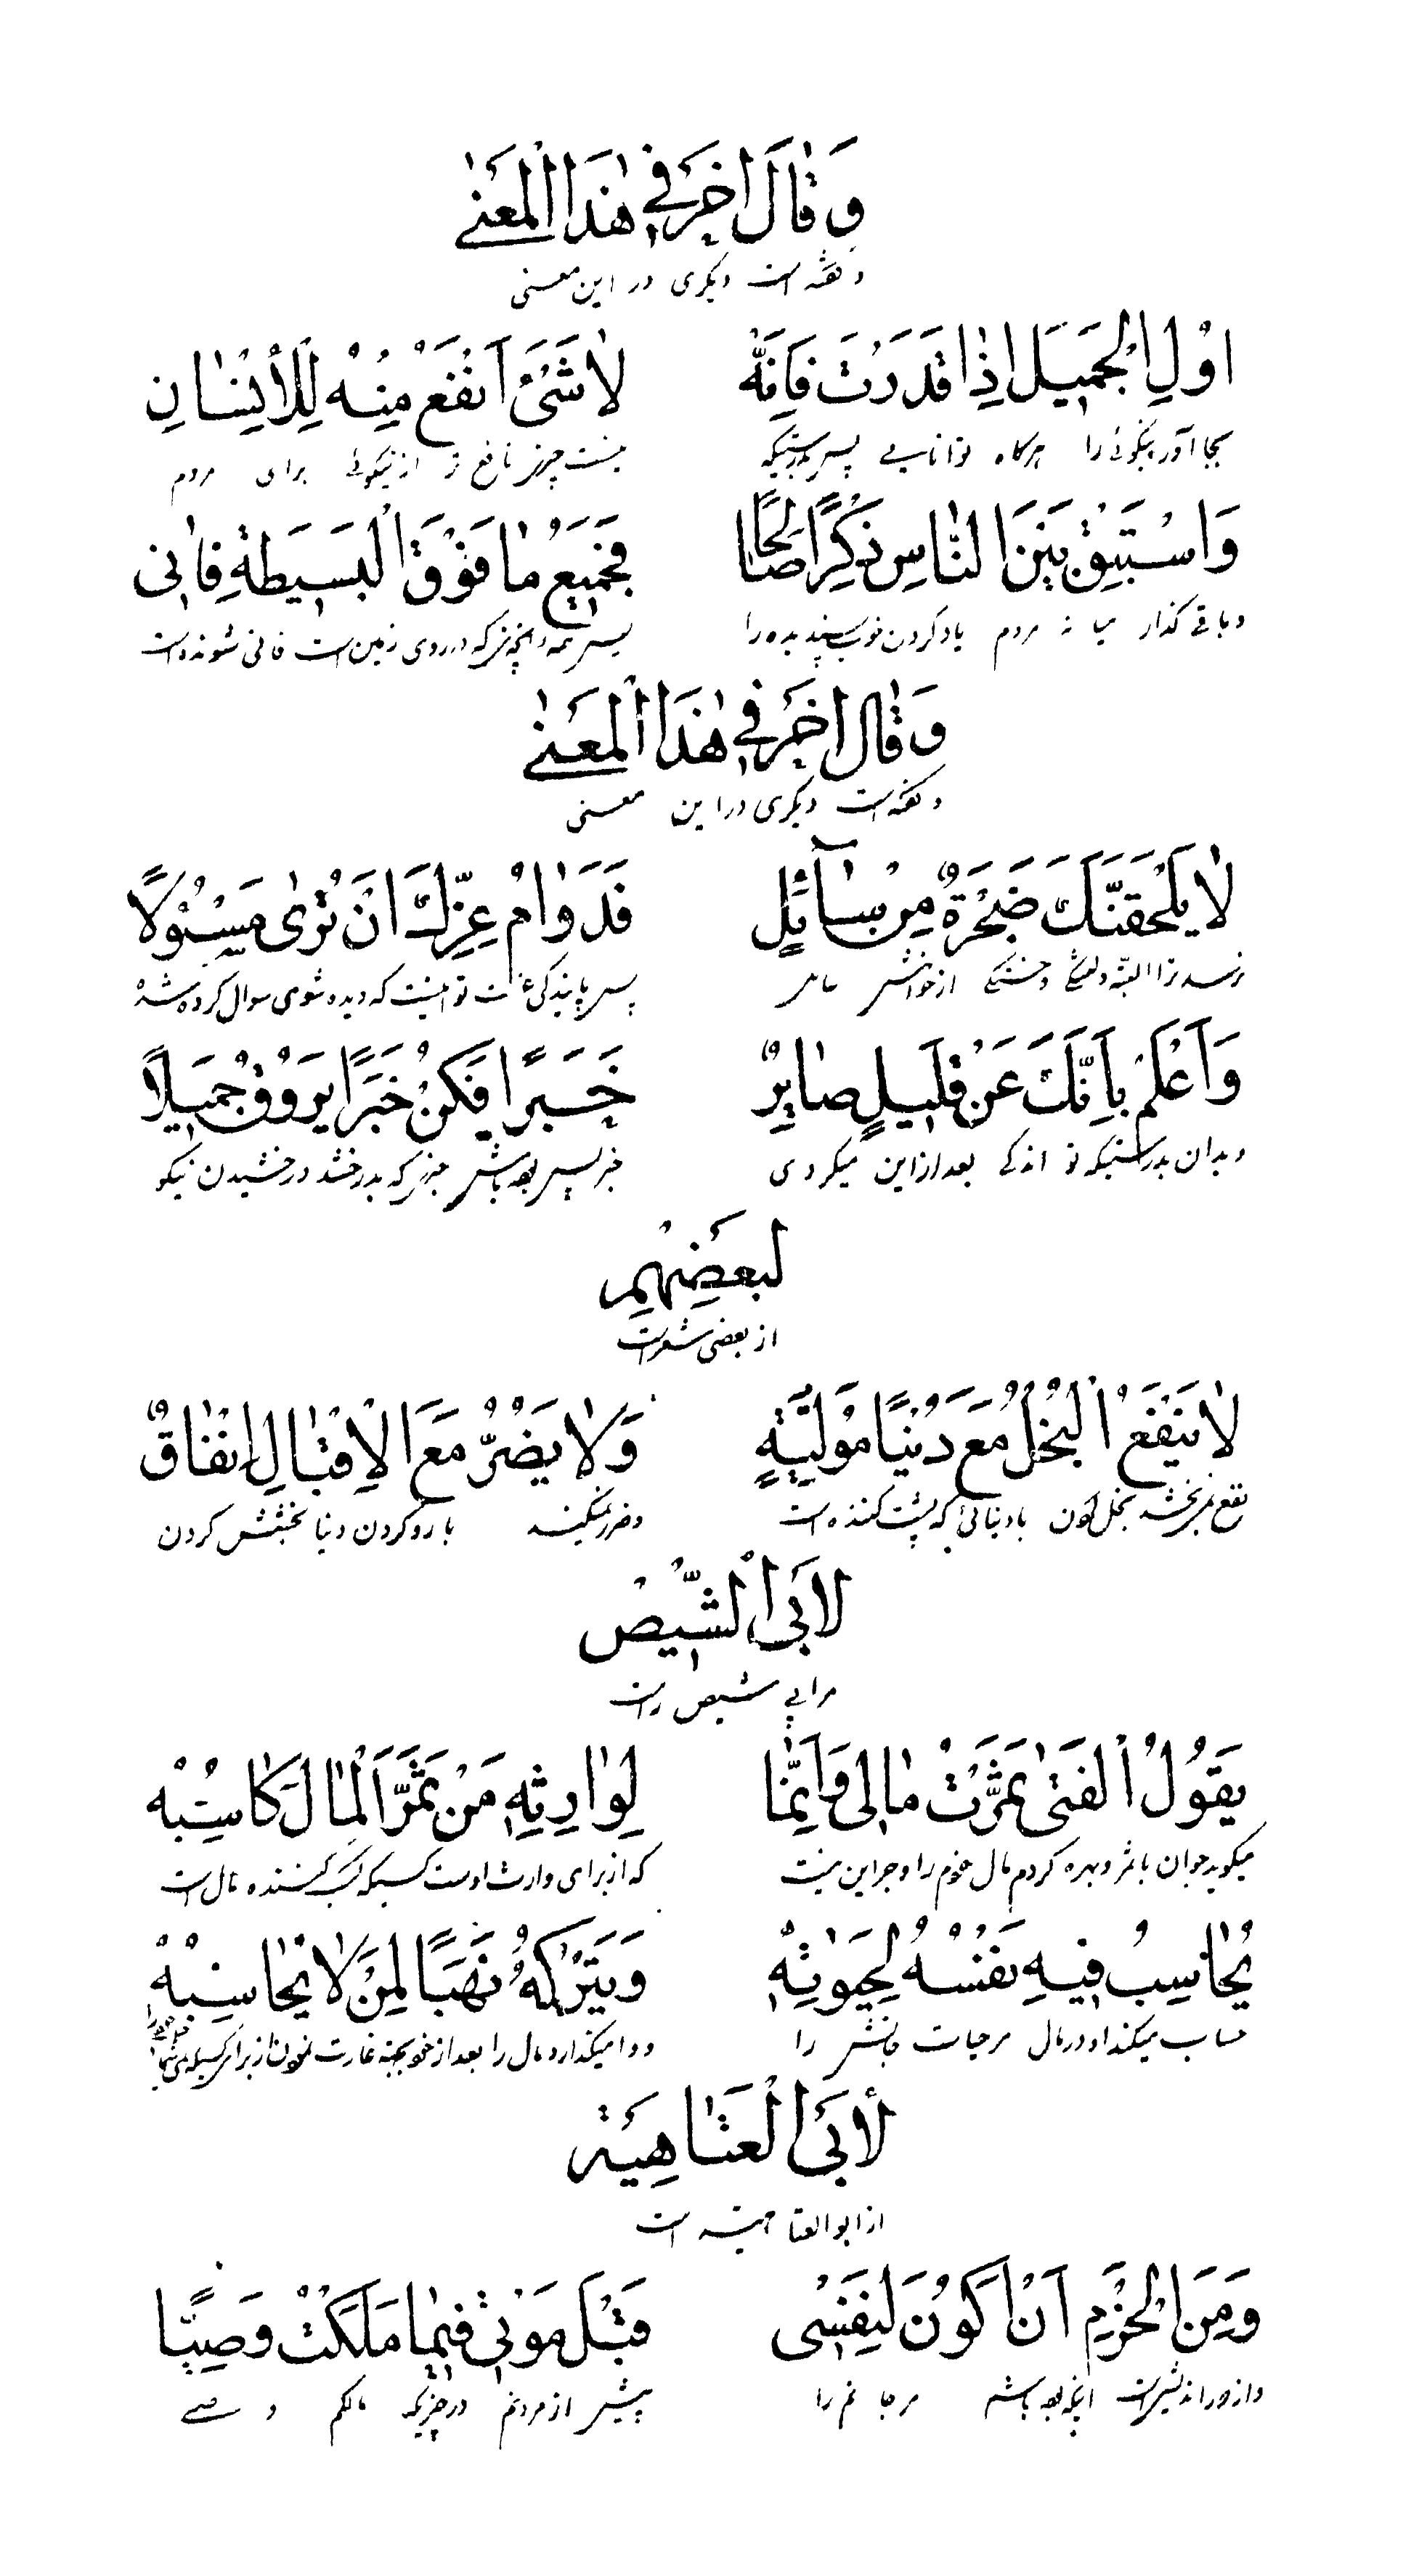 وَقٰالَ اخَرُ فِي هٰذَا الْمَعْنٰى
و گفته است دیگری در این معنی
اَوْلِ الْجَمِيلَ اِذٰا قَدَرْتَ فَاِنَّهُ لٰا شَىْءَ اَنْفَعُ مِنْهُ لِلْأِنْسٰانِ
بجا آور نیکوئی را هرگاه توانایی پس بدرستیکه نیست چیزی نافع تر از نیکوئی برای مردم
وَاسْتَبْقِ بَيْنَ النّٰاسِ ذِكْرًا صٰالِحًا فَجَمِيعُ مٰا فَوْقَ الْبَسِيطَةِ فٰانِى
و باقی گذار میانه مردم یاد کردن خوب پسندیده را پس همه آنچه که در روی زمین است فانی شونده است
وَقٰالَ اخَرُ فِي هٰذَا الْمَعْنٰى
و گفته است دیگری در این معنی
لٰا يَلْحَقَنَّكَ ضَجْرَةٌ مِنْ سٰآئِلٍ فَدَوٰامُ عِزِّكَ اَنْ تُرٰى مَسْئُولًا
نرسد ترا البته دلتنگی و خستگی از خواهش پس پایندگی عزت تو اینست که دیده شوی سوال کرده شده
وَاَعْلَمْ بِاَنَّكَ عَنْ قَلِيلٍ صٰايِرٌ خَبَرًا فَكُنْ خَبَرًا يَرُوقُ جَمِيلًا
و بدان بدرستیکه تو اندکی بعد از این میگردی خبر پس بوده باش خبری که بدرخشد درخشیدن نیکو
لِبَعْضِهِمْ
از بعضی شعراست
لٰا يَنْفَعُ الْبُخْلُ مَعَ دُنْيًا مُوَلِّيَةٍ وَلٰا يَضُرُّ مَعَ الْاِقْبٰالِ اِنْفٰاقٌ
نفع نمی بخشد بخل کردن با دنیائی که پشت کننده است و ضرر نمیکند با رو کردن دنیا بخشش کردن
لِأَبِى الشِّيْصِ
مر ابی شیص راست
يَقُولُ الْفَتٰى ثَمَّرْتُ مٰالِى وَاِنَّمٰا لِوٰارِثِهِ مَنْ ثَمَّرَ الْمٰالَ كٰاسِبُهْ
میگوید جوان با ثمر و بهره کردم مال خودم را و جز این نیست که از برای وارث اوست کسیکه کسب کننده مال است
يُحٰاسِبُ فِيهِ نَفْسُهُ لِحَيٰوتِهِ وَيَتْرُكُهُ نَهْبًا لِمَنْ لٰا يُحٰاسِبُهْ
حساب میکند او در مال مر حیات جانش را و وا میگذارد مال را بعد از خود بجهة غارت نمودن از برای کسیکه
لِأَبِى الْعَتٰاهِيَةِ
از ابوالعتاهیه است
وَمِنَ الْحَزْمِ اَنْ اَكُونَ لِنَفْسِى قَبْلَ مَوْتِى فِيمٰا مَلَكْتُ وَصِيًّا
و از دور اندیشی است اینکه بوده باشم مر جانم را پیش از مردنم در چیزیکه مالکم وصی